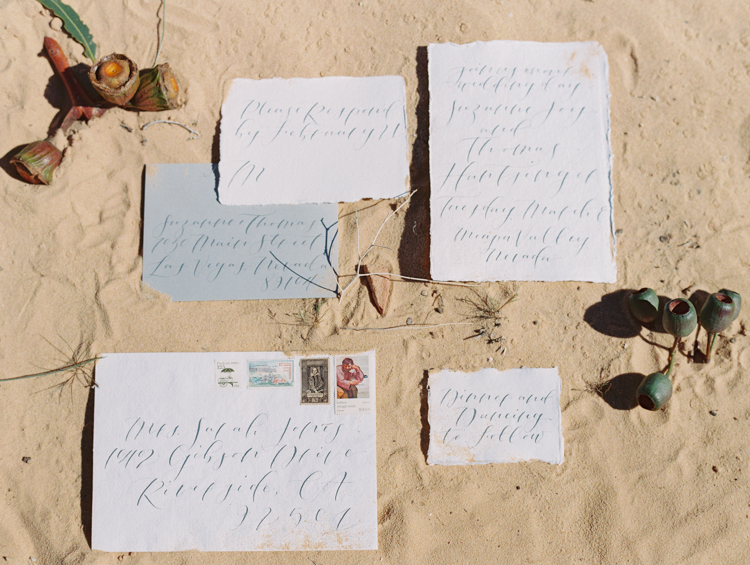 Please Respond
by February 21
M
Suzanne Thomas
Main Street
Las Vegas, Nevada
wedding day
Suzanne Joy
and
Thomas
Tuesday
Moapa Valley
Nevada
Mrs Sarah Jones
1912 Gibson Drive
Riverside, CA
92507
Dinner and
Dancing
to follow